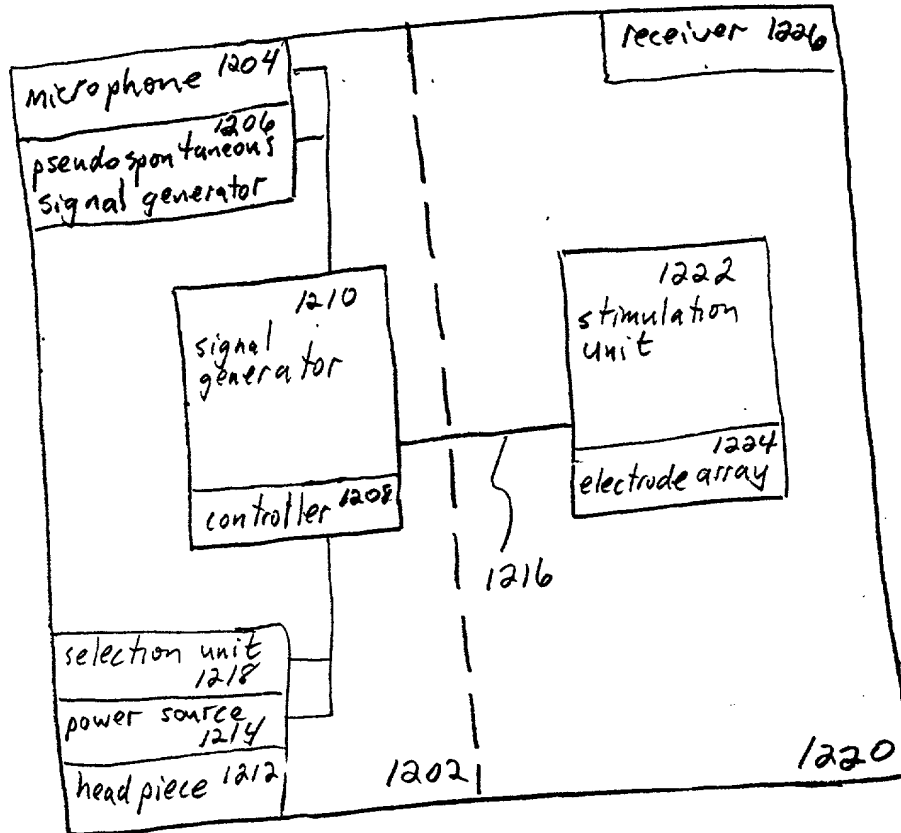 microphone 1204
1206
pseudospontaneous
signal generator
receiver 1226
1210
signal
generator
controller 1208
1222
stimulation
unit
1224
electrode array
1216
selection unit
1218
power source
1214
headpiece 1212
1202
1220